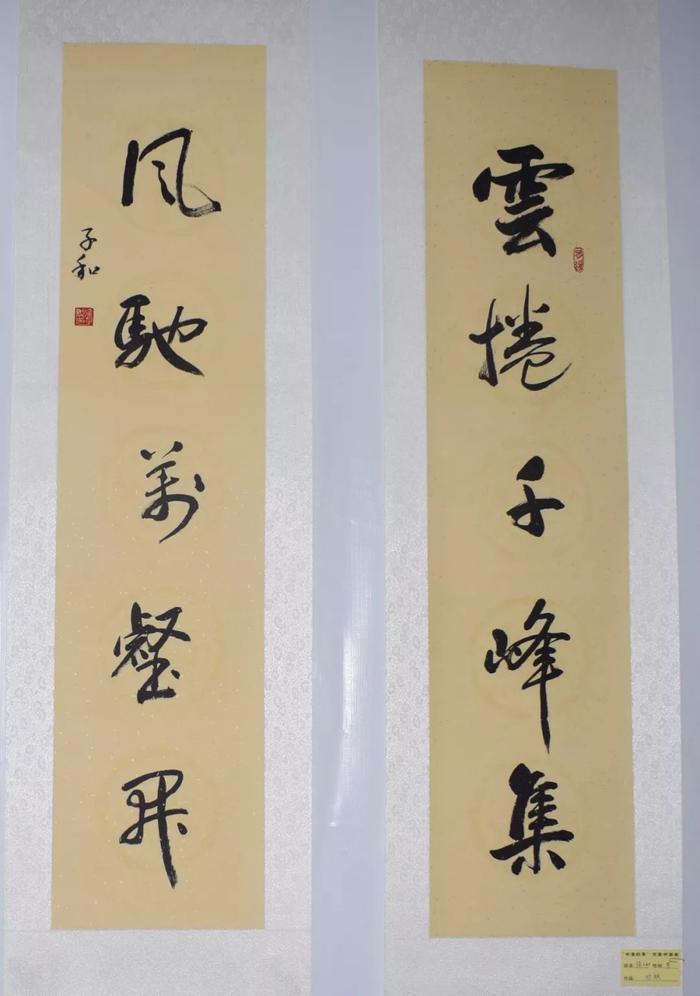 雲捲千峰集
風馳萬壑開
子和